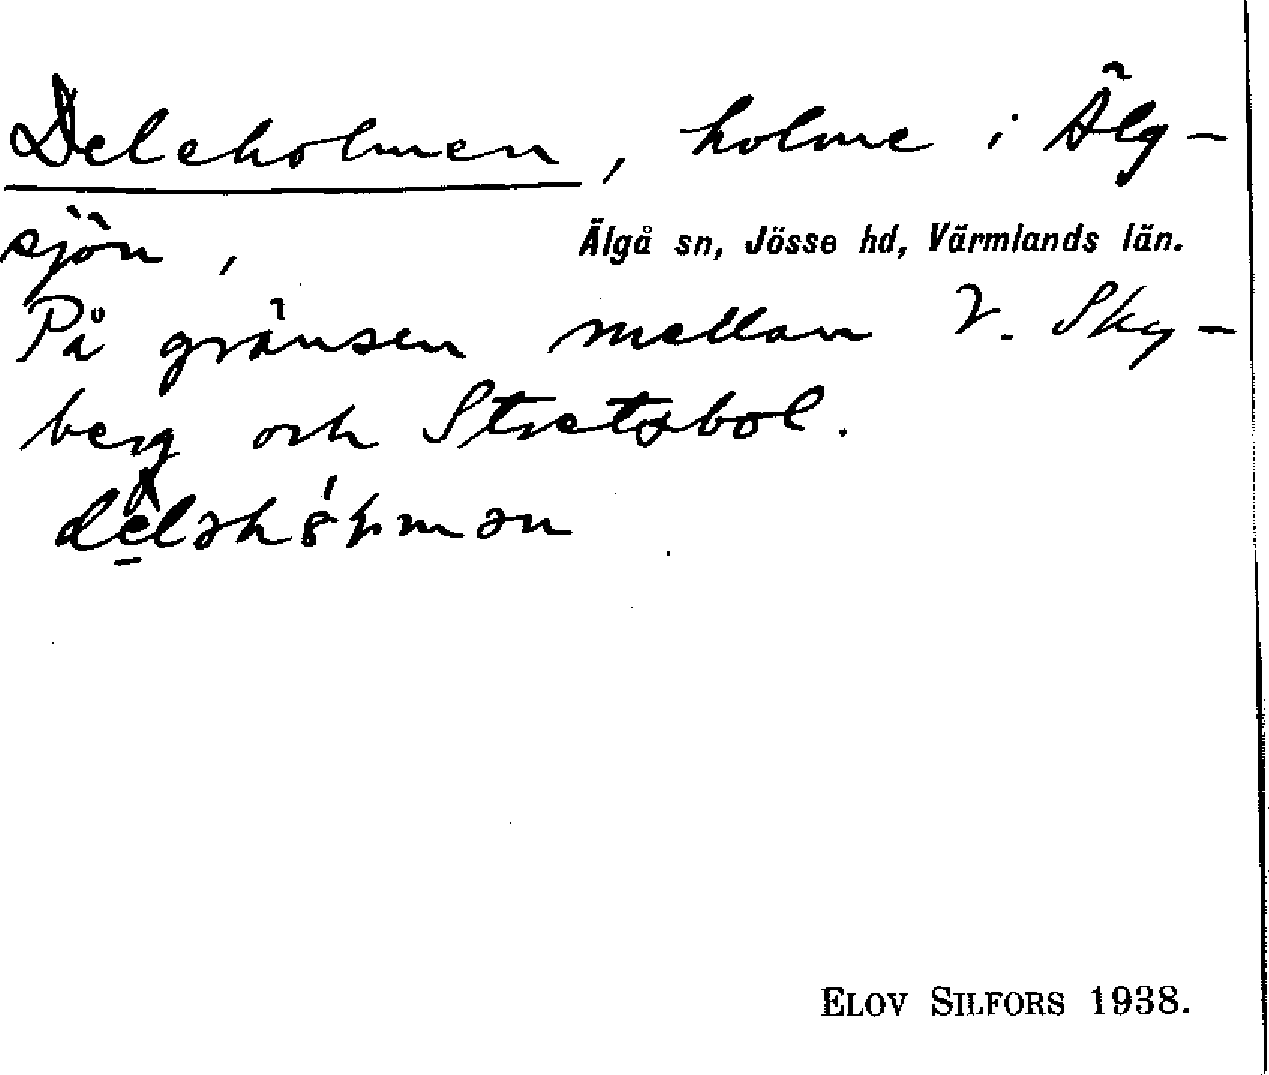 Deleholmen, holme i Älg-
sjön, Älgå sn, Jösse hd, Värmlands län.
På gränsen mellan V. Sky-
berg och Stretsbol.
ELOV SILFORS 1938.